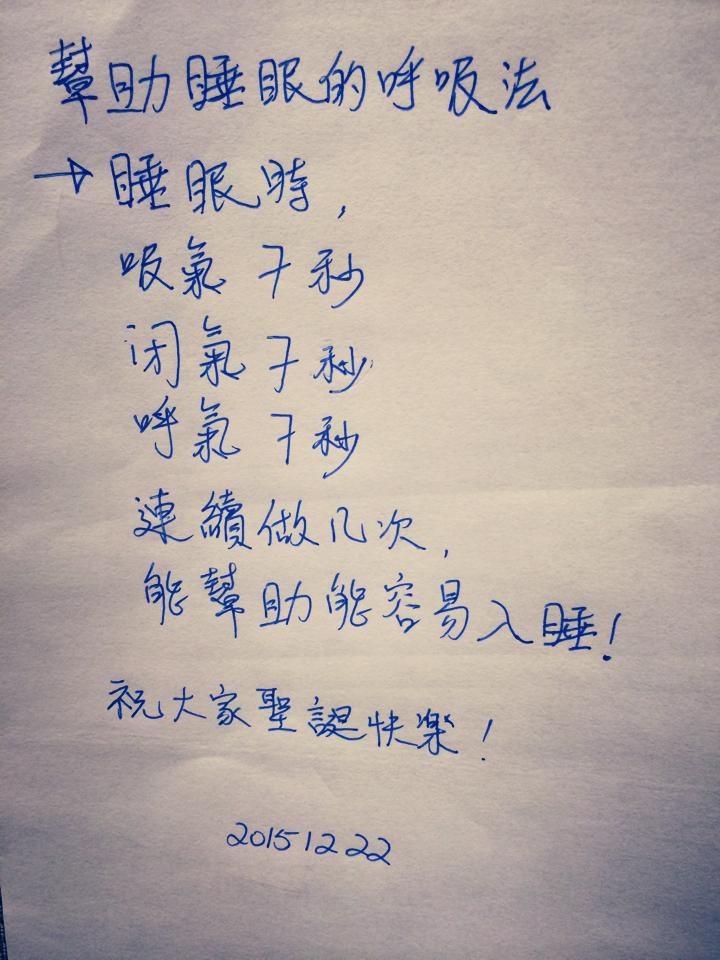 幫助睡眠的呼吸法
→睡眠時,
吸氣 7 秒
闭氣 7 秒
呼氣 7 秒
連續做几次,
能幫助能容易入睡!
祝大家聖誕快樂!
2015 12 22